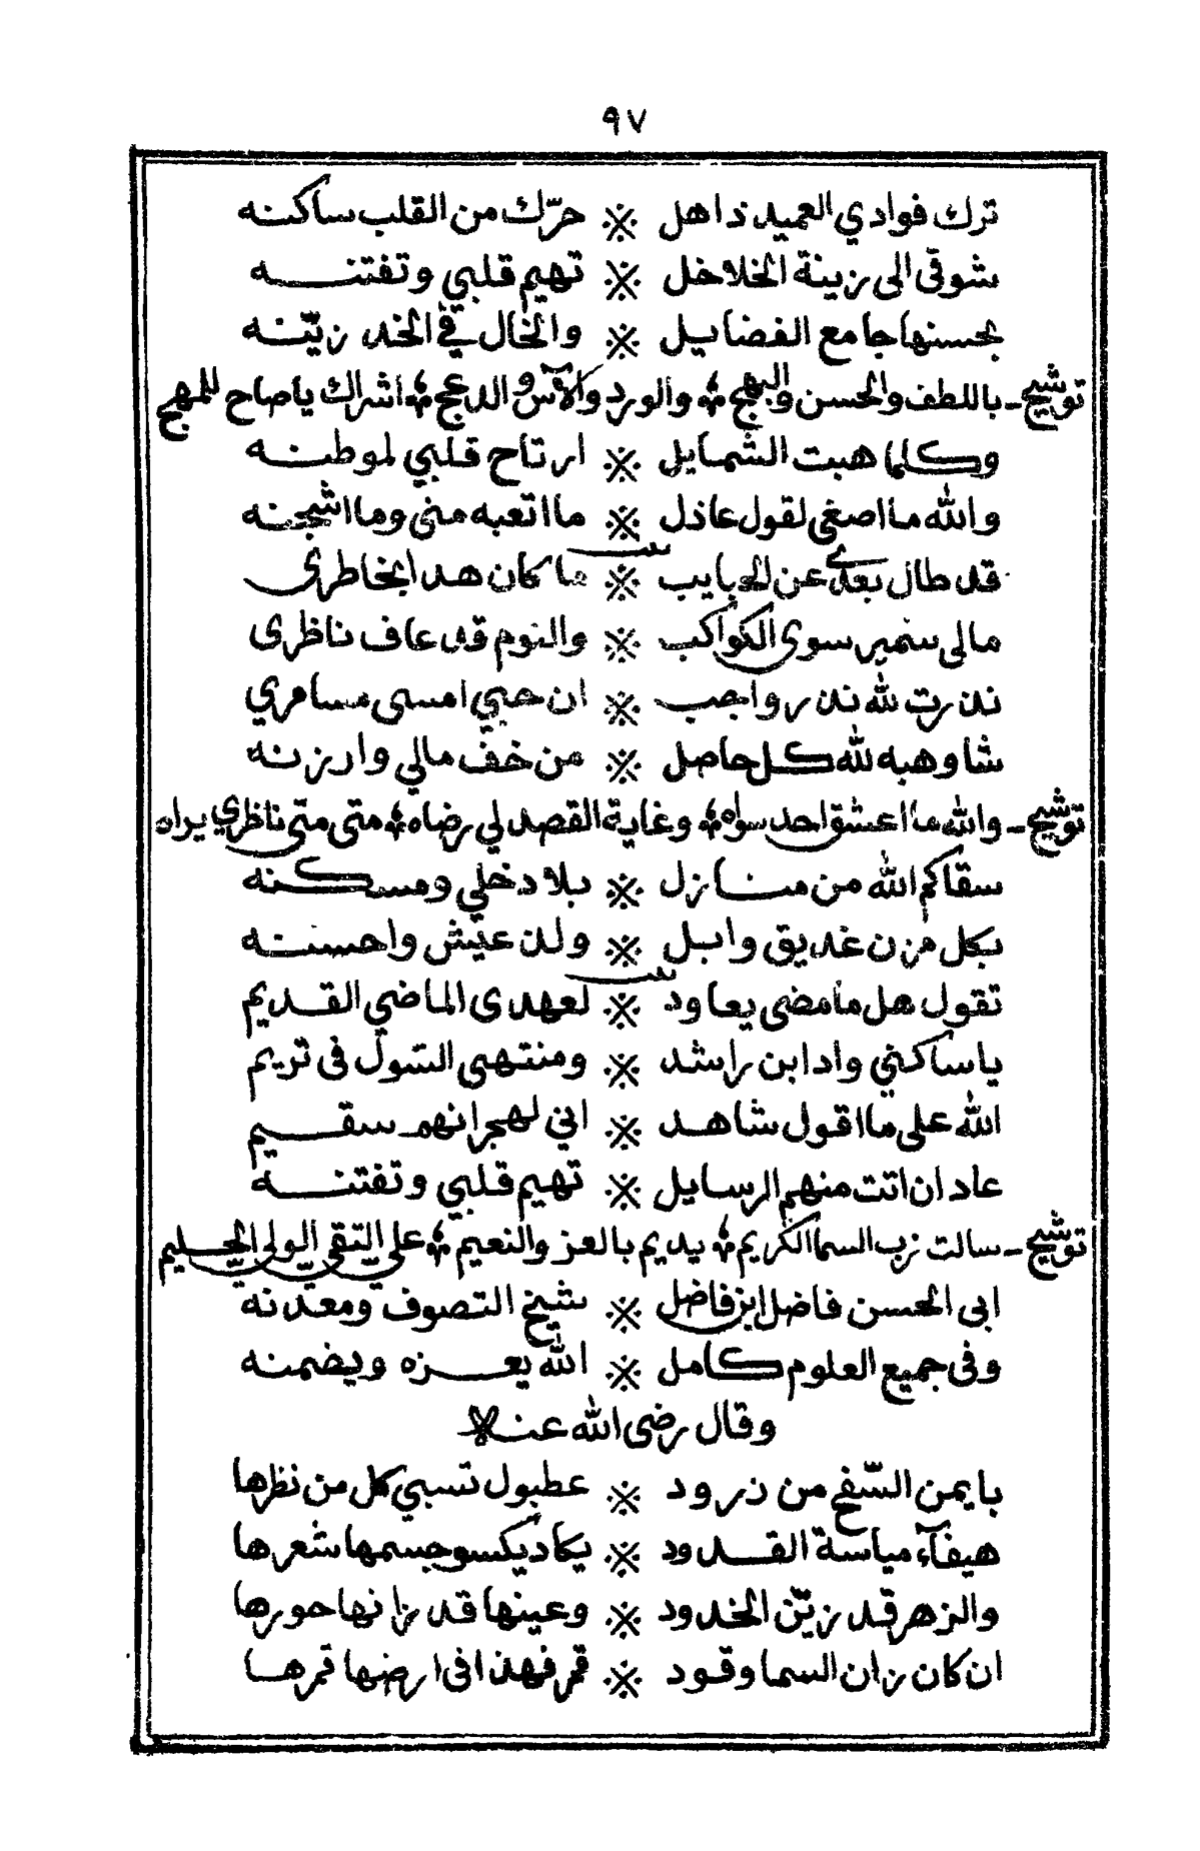 ٩٧
ترك فوادي العميد ذاهل ※ حرّك من القلب ساكنه
شوقى الى زينة الخلاخل ※ تهيم قلبي وتفتنه
بحسنها جامع الفضايل ※ والخال في الخد زيّنه
توشيح - باللطف والحسن والبهج ؛ والورد والآس والدعج ؛ اشراك ياصاح للمهج
وكلما هبت الشمايل ※ ارتاح قلبي لموطنه
والله ما اصغى لقول عاذل ※ ما اتعبه منى وما اشجنه
قد طال بعدي عن الحبايب ※ ما كان هدا بخاطرى
مالى سمير سوى الكواكب ※ والنوم قد عاف ناظرى
ندرت لله ندر واجب ※ ان حبي امسى مسامري
شا وهبه لله كل حاصل ※ من خف مالي وارزنه
توشيح - والله ما اعشق احد سواه ؛ وغاية القصد لي رضاه ؛ متى متى ناظري يراه
سقاكم الله من منازل ※ بلاد خلي ومسكنه
بكل مزن غديق وابل ※ ولد عيش واحسنه
تقول هل ما مضى يعاود ※ لعهدى الماضي القديم
ياساكني واد ابن راشد ※ ومنتهى السّول فى تريم
الله على ما اقول شاهد ※ اني لهجرانهم سقيم
عاد ان اتت منهم الرسايل ※ تهيم قلبي وتفتنه
توشيح - سالت رب السما الكريم ؛ يديم بالعز والنعيم ؛ على التقى الولى الحليم
ابى الحسن فاضل ابن فاضل ※ شيخ التصوف ومعدنه
وفى جميع العلوم كامل ※ الله يعزه ويضمنه
وقال رضى الله عنه
بايمن السّفح من زرود ※ عطبول تسبي كل من نظرها
هيفآء مياسة القدود ※ يكاد يكسو جسمها شعرها
والزهر قد زيّن الخدود ※ وعينها قد زانها حورها
ان كان زان السما وقود ※ قمر فهذا فى ارضها قمرها